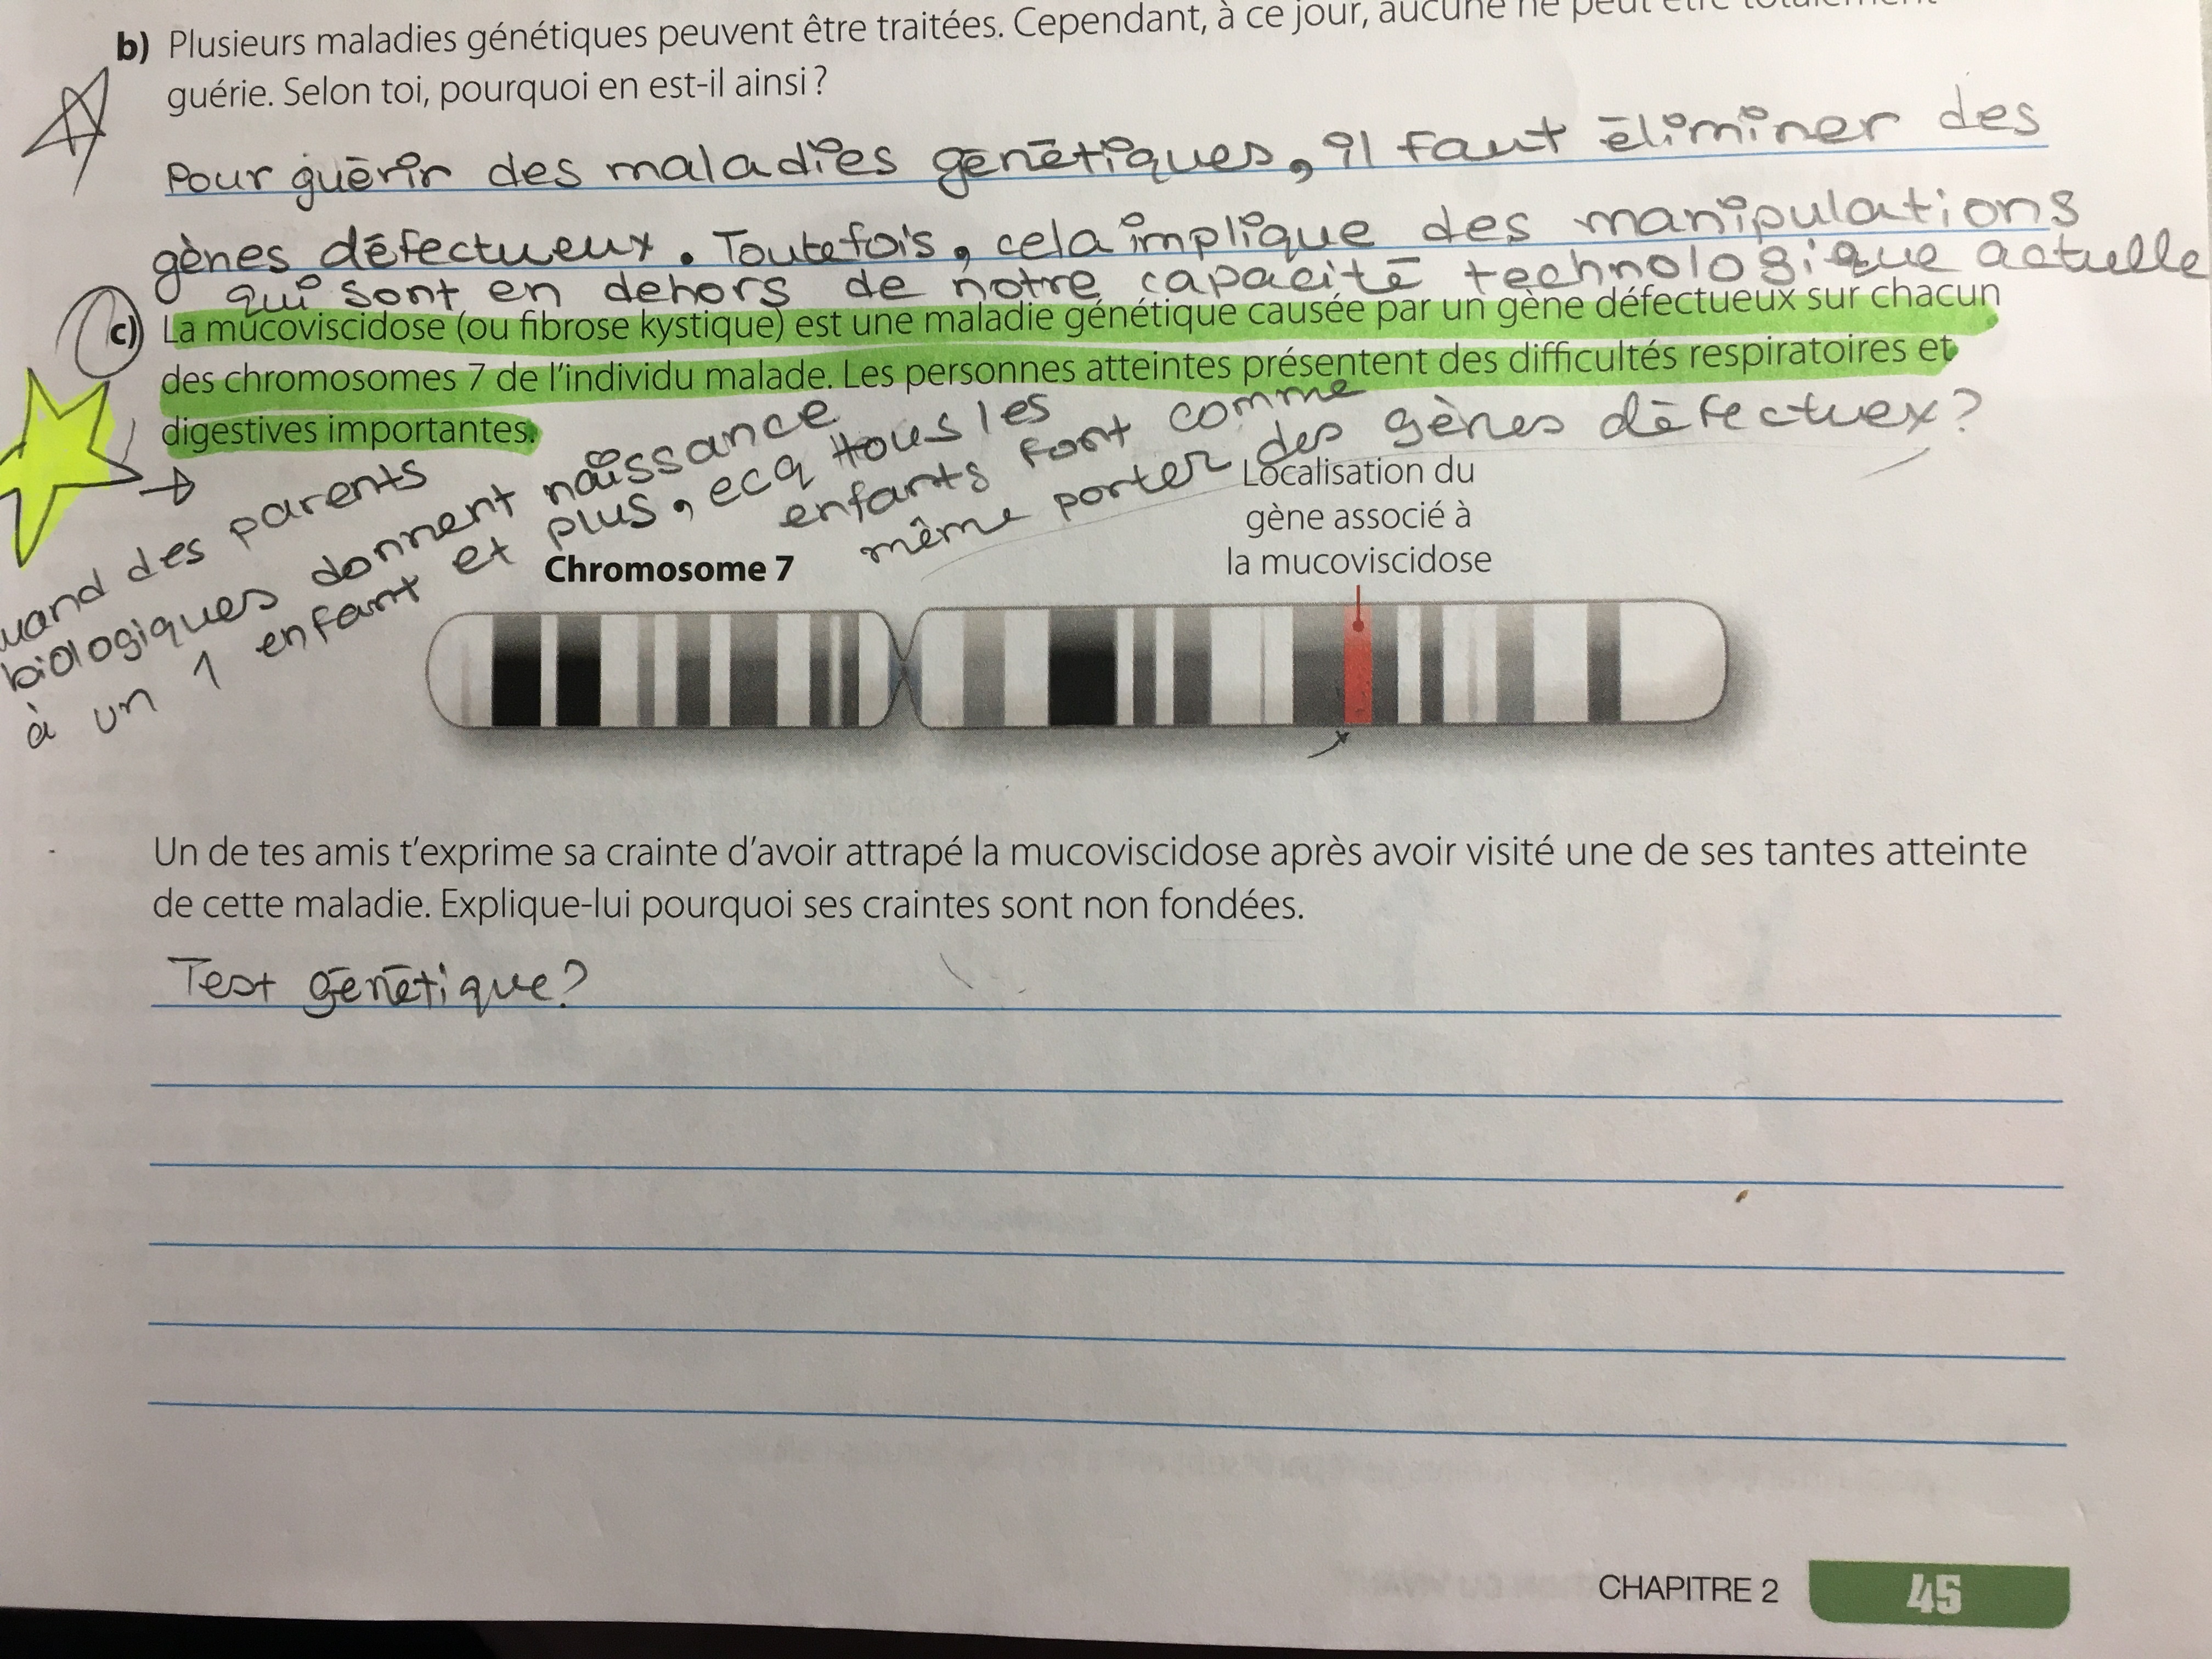 b) Plusieurs maladies génétiques peuvent être traitées. Cependant, à ce jour, aucune ne peut être totalement
guérie. Selon toi, pourquoi en est-il ainsi ?
Pour guérir des maladies génétiques, il faut éliminer des
gènes défectueux. Toutefois, cela implique des manipulations
qui sont en dehors de notre capacité technologique actuelle
c) La mucoviscidose (ou fibrose kystique) est une maladie génétique causée par un gène défectueux sur chacun
des chromosomes 7 de l'individu malade. Les personnes atteintes présentent des difficultés respiratoires et
digestives importantes.
uand des parents
biologiques donnent naissance
à un 1 enfant et plus, ecq tous les
enfants font comme
même porter des gènes défectuex?
Localisation du
gène associé à
la mucoviscidose
Chromosome 7
Un de tes amis t'exprime sa crainte d'avoir attrapé la mucoviscidose après avoir visité une de ses tantes atteinte
de cette maladie. Explique-lui pourquoi ses craintes sont non fondées.
Test génétique?
CHAPITRE 2 45